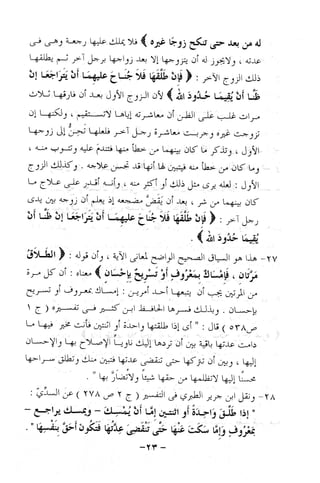 له من بعد حتى تنكح زوجًا غيره ﴾ فلا يملك عليها رجعة وهى فى
عدته ، ولايجوز له أن يتزوجها إلا بعد زواجها برجل آخر ثم يطلقها
ذلك الزوج الآخر : ﴿ فَإِنْ طَلَّقَهَا فَلَا جُنَاحَ عَلَيهِمَا أَنْ يَتَرَاجَعَا إِنْ
ظَنَّا أَنْ يُقِيمَا حُدُودَ اللهِ ﴾ لأن الزوج الأول بعد أن فارقها ثلاث
مرات غلب على الظن أن معاشرته إياها لاتستقيم ، ولكنها إن
تزوجت غيره وجربت معاشرة رجل آخر فلعلها تحن إلى زوجها
الأول ، وتذكر ما كان من خطأ منها فتندم عليه وتتوب منه ،
وما كان من خطأ منه فيتبين لها أنها قد تحسن علاجه . وكذلك الزوج
الأول : لعله يرى مثل ذلك أو أكثر منه ، وأنه أقدر على علاج ما
كان بينهما من شر ، بعد أن يَقُضّ مضجعه إذ يعلم أن زوجه بين يدى
رجل آخر : ﴿ فَإِنْ طَلَّقَهَا فَلَا جُنَاحَ عَلَيهِمَا أَنْ يَتَرَاجَعَا إِنْ ظَنَّا أَنْ
يُقِيمَا حُدُودَ اللهِ ﴾ .
٢٧- هذا هو السياق الصحيح الواضح لمعانى الآية ، وأن قوله : ﴿ الطَّلَاقُ
مَرَّتَانِ ، فَإِمْسَاكٌ بِمَعْرُوفٍ أَوْ تَسْرِيحٌ بِإِحْسَانٍ ﴾ معناه : أن كل مرة
من المرتين يجب أن يتبعها أحد أمرين : إمساك بمعروف أو تسريح
بإحسان . وبذلك فسرها الحافظ ابن كثير فى تفسيره ( ج ١
ص٥٣٨ ) قال : " أى إذا طلقتها واحدة أو اثنتين فأنت مخير فيها ما
دامت عدتها باقية بين أن تردها إليك ناوياً الإصلاح بها والإحسان
إليها ، وبين أن تتركها حتى تنقضى عدتها فتبين منك وتطلق سراحها
محسنًا إليها لاتظلمها من حقها شيئاً ولاتُضارَّ بها "
٢٨- ونقل ابن جرير الطبرى فى التفسير ( ج ٢ ص ٢٧٨ ) عن السدِّيّ :
" إذا طَلَّقَ وَاحِدَةً أو اثنتين إمَّا أَنْ يُمْسِكَ - ويمسك يراجع -
بِمَعْرُوفٍ وَإمَّا سَكَتَ عَنْهَا حَتَّى تَنْقَضِىَ عِدَّتُهَا فَتَكُونَ أَحَقَّ بِنَفْسِهَا " .
- ٢٣-